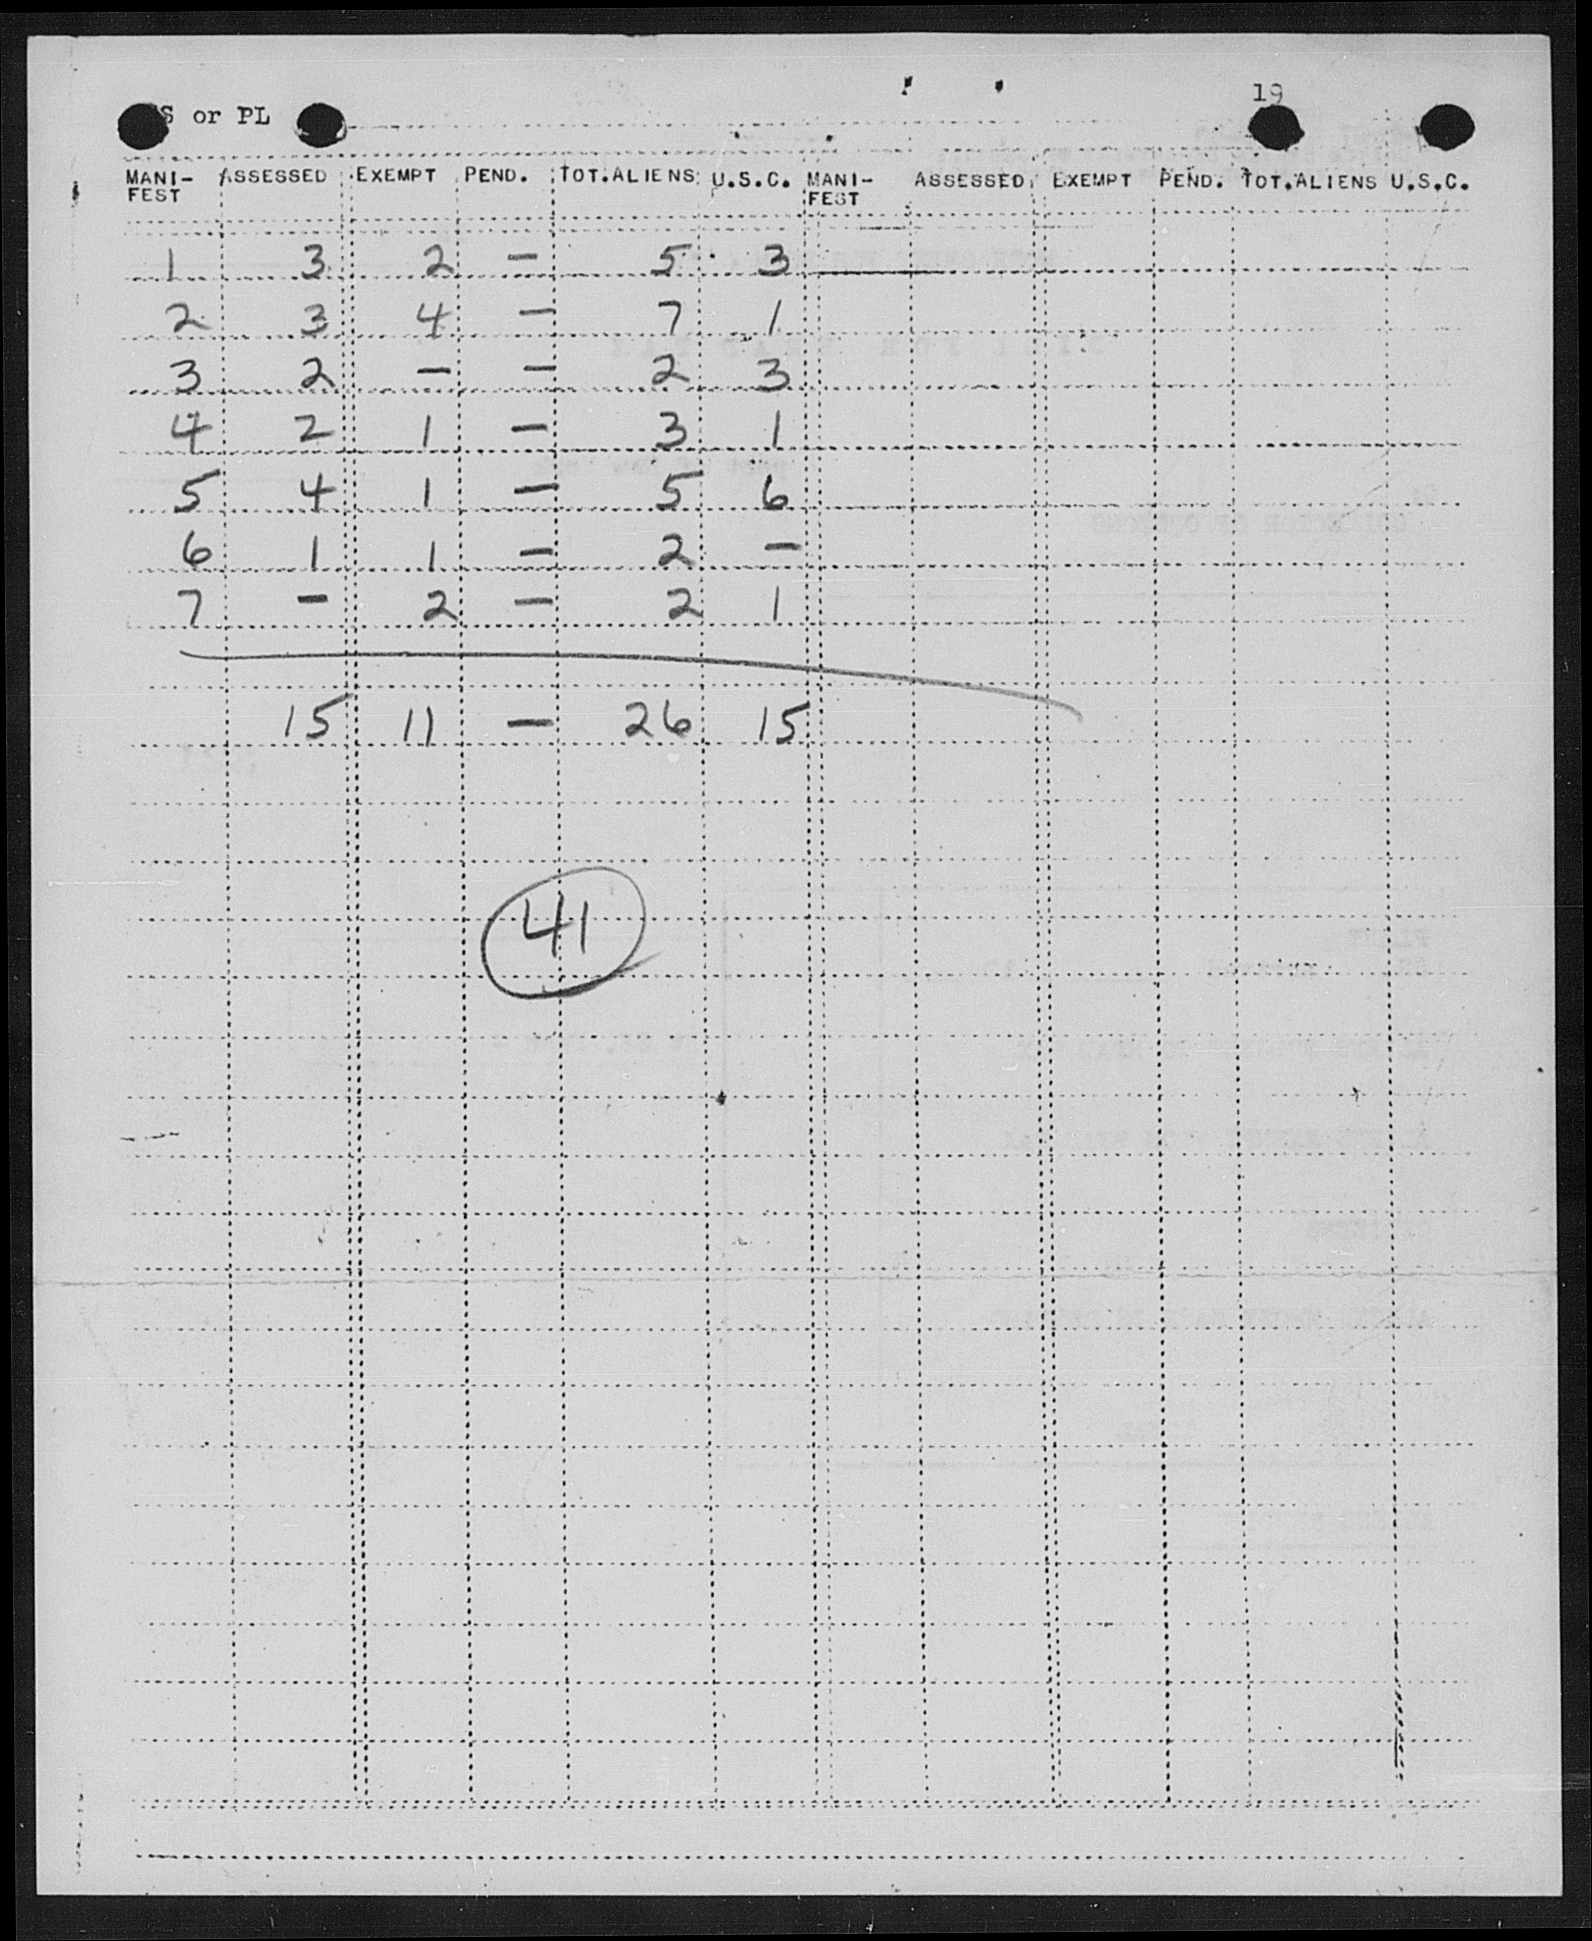 S or PL 19
MANI- ASSESSED EXEMPT PEND. TOT.ALIENS U.S.C. MANI- ASSESSED EXEMPT PEND. TOT.ALIENS U.S.C.
FEST FEST
1 3 2 – 5 3
2 3 4 – 7 1
3 2 – – 2 3
4 2 1 – 3 1
5 4 1 – 5 6
6 1 1 – 2 –
7 – 2 – 2 1
15 11 – 26 15
41